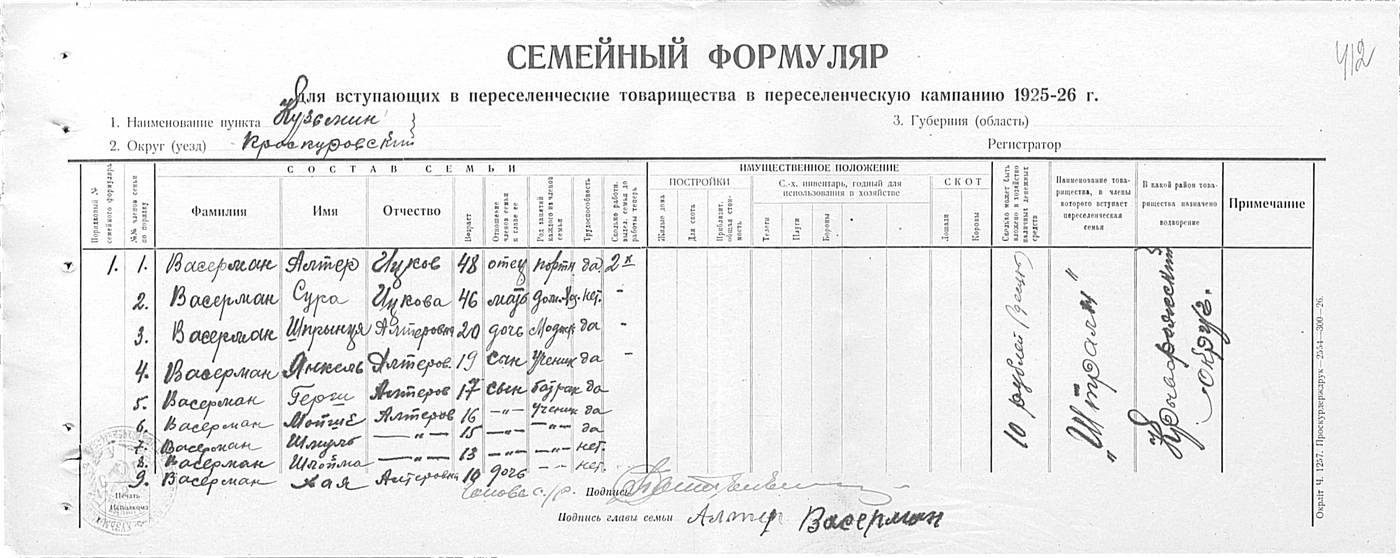 412
СЕМЕЙНЫЙ ФОРМУЛЯР
Для вступающих в переселенческие товарищества в переселенческую кампанию 1925-26 г.
1. Наименование пункта Кузьмин
3. Губерния (область)
2. Округ (уезд) Проскуровский
Регистратор
Порядковый № семейного формуляра
№№ членов семьи по порядку
СОСТАВ СЕМЬИ
Фамилия
Имя
Отчество
Возраст
Отношение членов семьи к главе ее
Род занятий каждого из членов семьи
Трудоспособность
Сколько работн. выдел. семья до работы теперь
ИМУЩЕСТВЕННОЕ ПОЛОЖЕНИЕ
ПОСТРОЙКИ
Жилые дома
Для скота
Приблизит. общая стоимость
С.-х. инвентарь, годный для использования в хозяйстве
Телеги
Плуги
Бороны
СКОТ
Лошади
Коровы
Сколько может быть вложено в хозяйство наличных денежных средств
Наименование товарищества, в члены которого вступает переселенческая семья
В какой район товарищества назначено водворение
Примечание
1. 1. Васерман Алтер Ицков 48 отец портн да 2х
2. Васерман Сура Ицкова 46 мать дом. хоз. нет. -
3. Васерман Шпрынця Алтеровна 20 дочь да -
4. Васерман Янкель Алтеров. 19 сын Ученик да -
5. Васерман Герш Алтеров 17 сын батрак да
6. Васерман Алтеров 16 -"- ученик да
7. Васерман Шмуль -"- 15 -"- -"- да
8. Васерман Шлойма -"- 13 -"- нет.
9. Васерман Хая Алтеровна 10 дочь -- нет.
10 рублей
„Штралн"
Криворожский округ.
Печать Исполкома
Подпись
Подпись главы семьи Алтер Васерман
Окрліт Ч. 1257. Проскурдерждрук—2554—300—26.